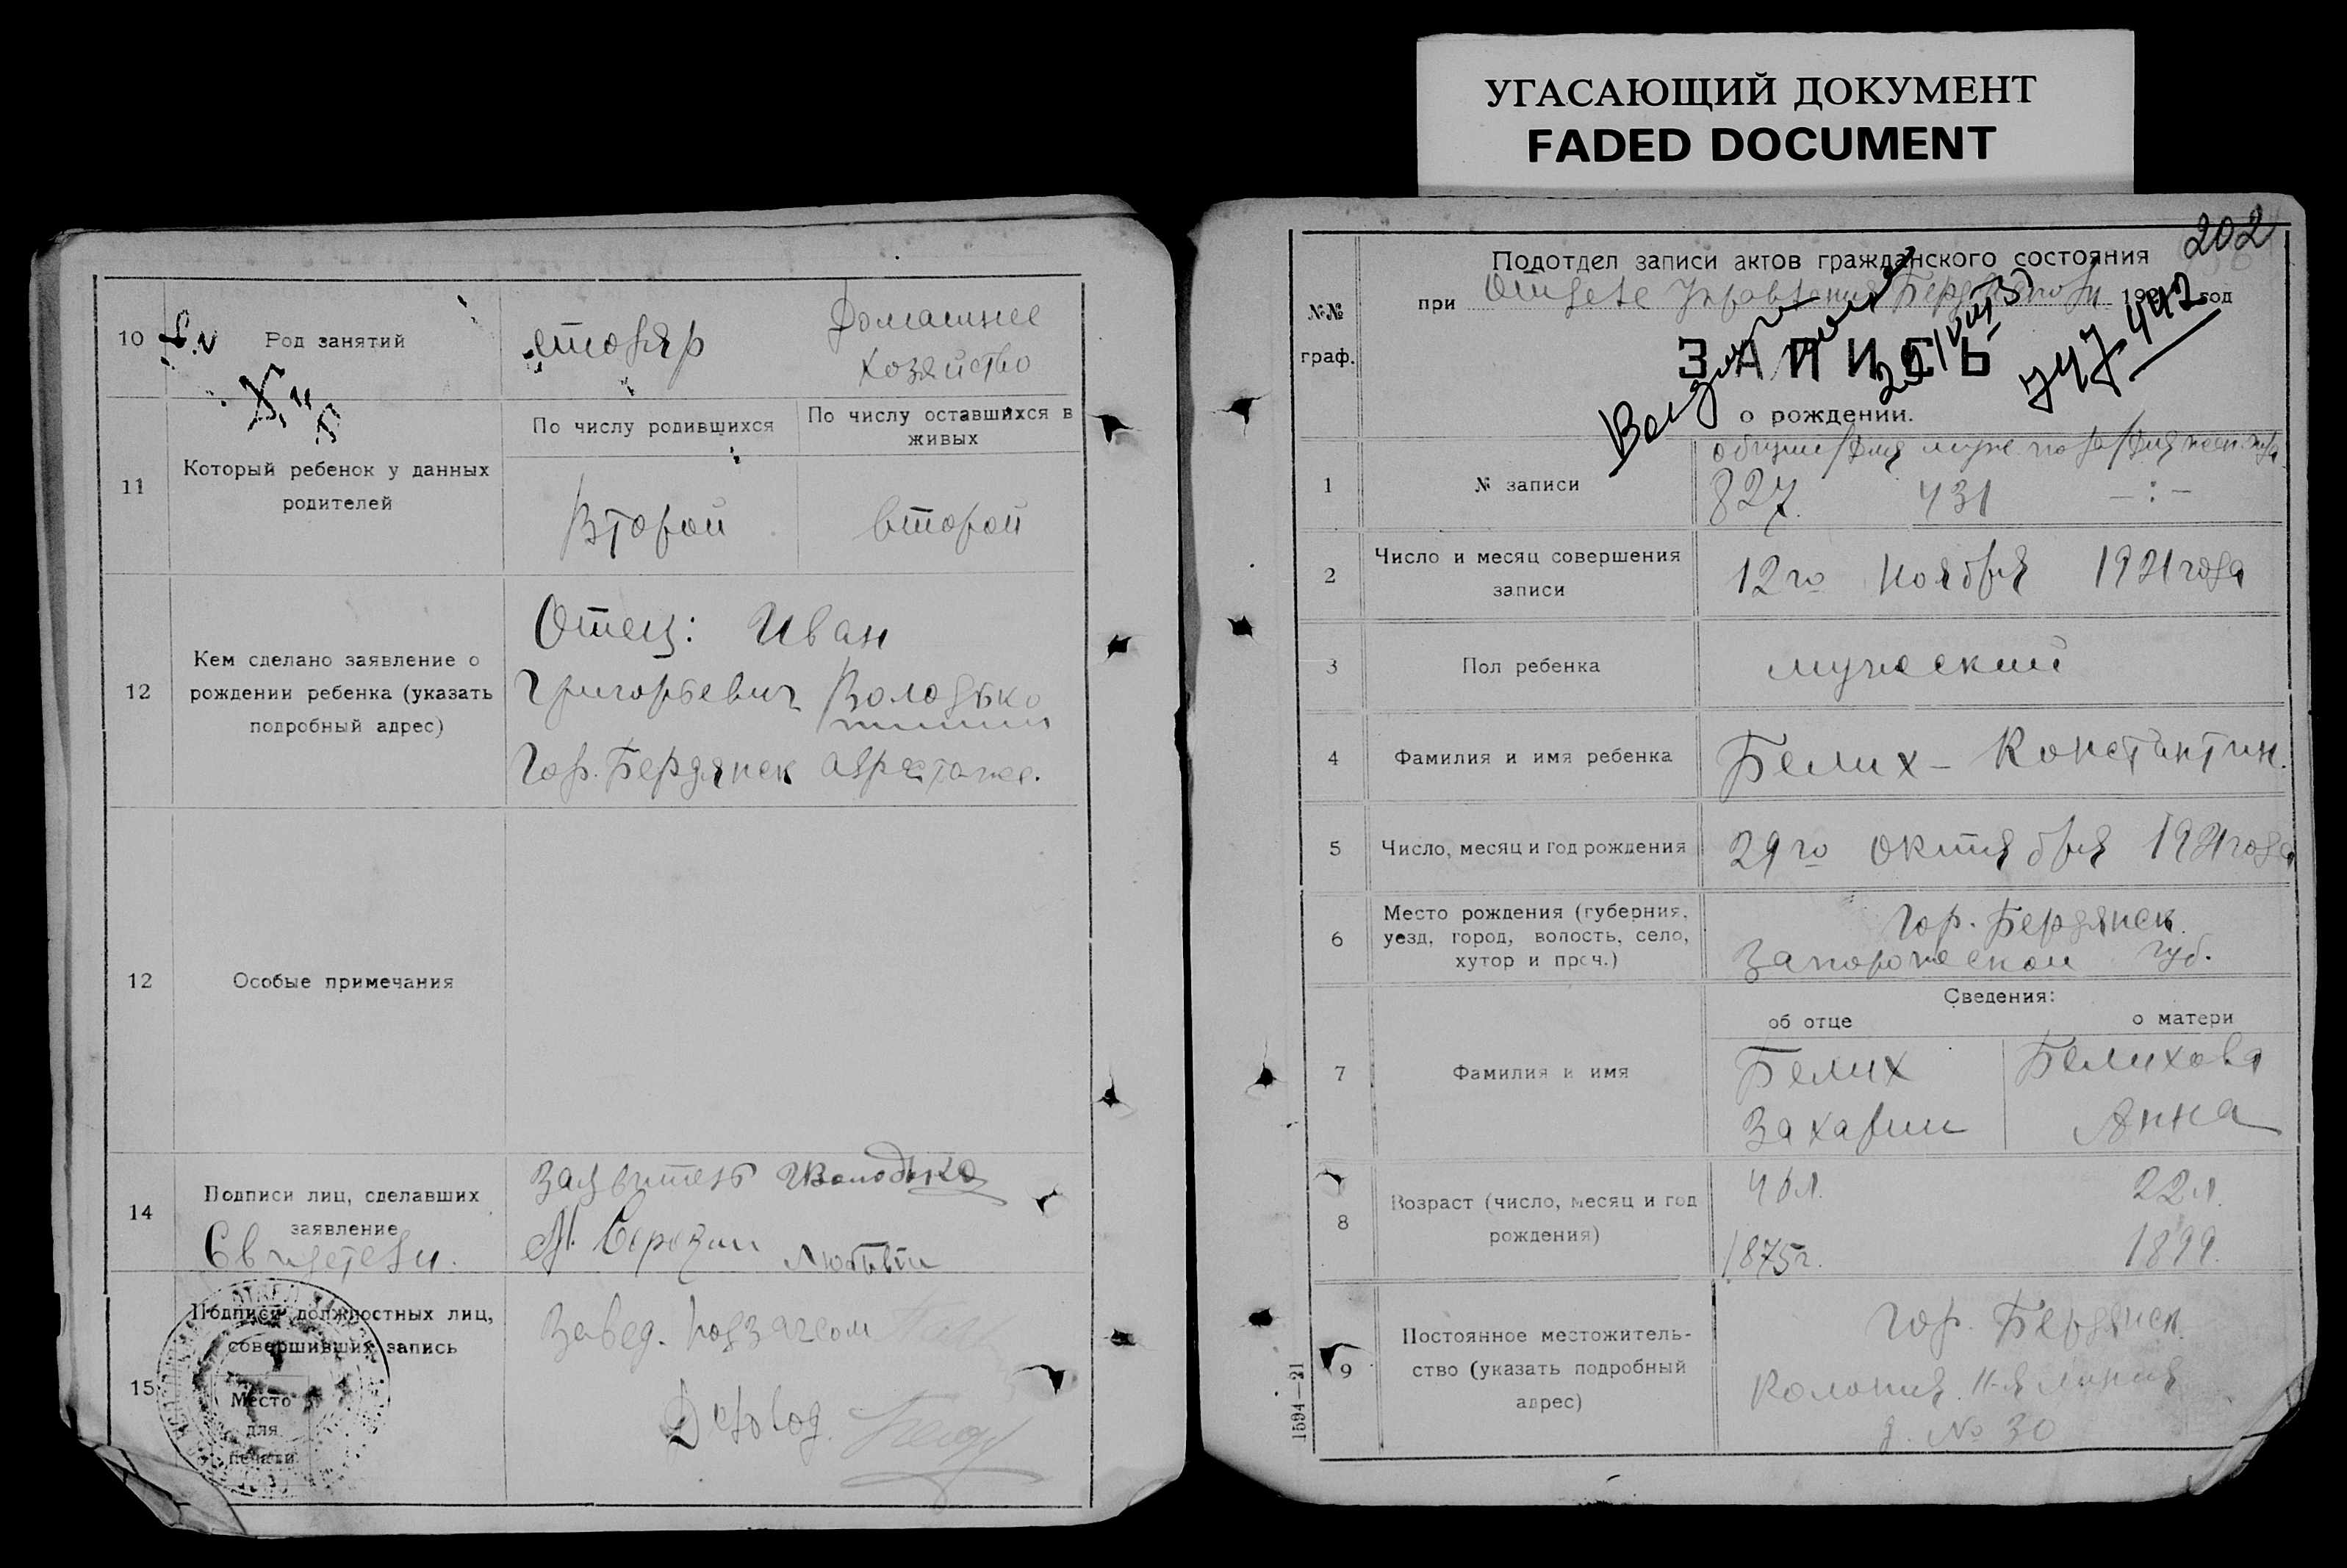 УГАСАЮЩИЙ ДОКУМЕНТ
FADED DOCUMENT
10
Род занятий
столяр
Домашнее
хозяйство
11
Который ребенок у данных
родителей
По числу родившихся
По числу оставшихся в
живых
Второй
второй
12
Кем сделано заявление о
рождении ребенка (указать
подробный адрес)
Отец: Иван
Григорьевич Володько
Гор. Бердянск
12
Особые примечания
14
Подписи лиц, сделавших
заявление
Свидетели.
Заявитель ИВолодько
15
Подписи должностных лиц,
совершивших запись
Место
для
печати
Завед. подзагсом
Деловод.
202
Подотдел записи актов гражданского состояния
при Отделе Управления
год
№№
граф.
ЗАПИСЬ
о рождении.
747 442
1
№ записи
827. 431 – : –
2
Число и месяц совершения
записи
12го Ноября 1921 года
3
Пол ребенка
мужеский
4
Фамилия и имя ребенка
Белих – Константин.
5
Число, месяц и год рождения
29го октября 1921 года
6
Место рождения (губерния,
уезд, город, волость, село,
хутор и проч.)
Гор. Бердянск.
Запорожской губ.
Сведения:
об отце
о матери
7
Фамилия и имя
Белих
Захарий
Белихова
Анна
8
Возраст (число, месяц и год
рождения)
46 л.
1875г.
22 л.
1899.
9
Постоянное местожитель-
ство (указать подробный
адрес)
Гор. Бердянск.
Колония 11-я линия
д. № 30
1594—21